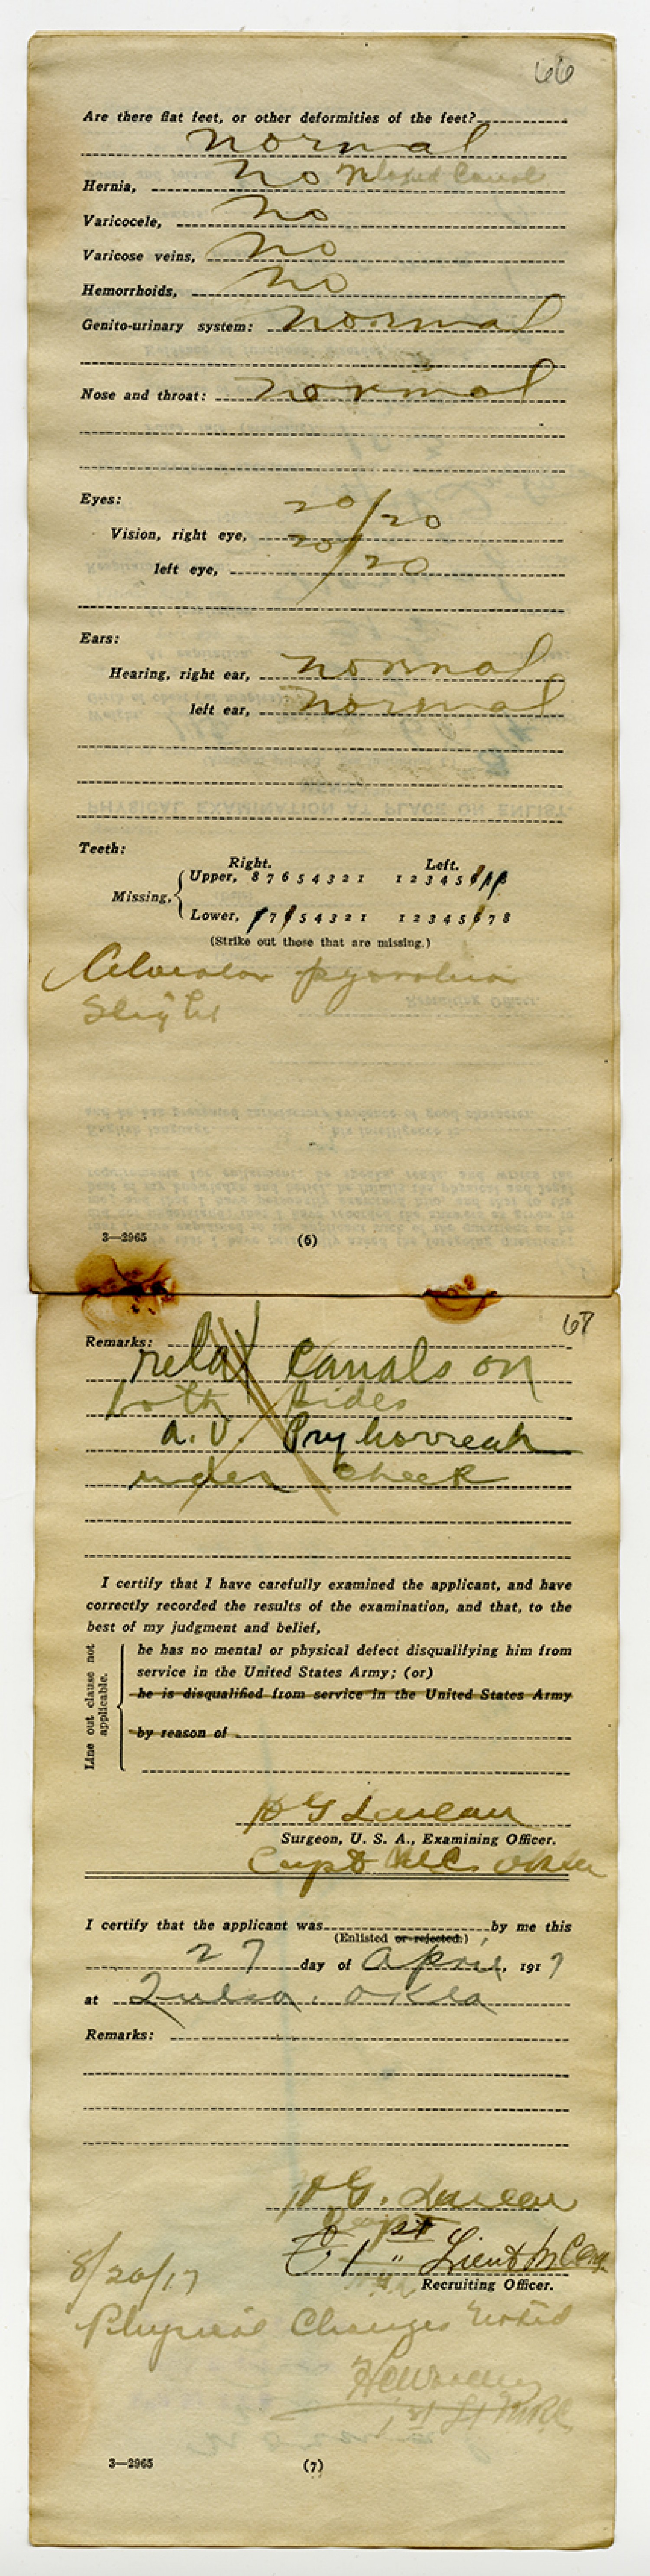 66
Are there flat feet, or other deformities of the feet?
normal
Hernia, no Relaxed Canal
Varicocele, no
Varicose veins, no
Hemorrhoids, no
Genito-urinary system: normal
Nose and throat: normal
Eyes:
Vision, right eye, 20/20
left eye, 20/20
Ears:
Hearing, right ear, normal
left ear, normal
Teeth:
Right. Left.
Missing, Upper, 8 7 6 5 4 3 2 1 1 2 3 4 5 6 7 8
Lower, 8 7 6 5 4 3 2 1 1 2 3 4 5 6 7 8
(Strike out those that are missing.)
Alveolar pyorrhea
Slight
3—2965 (6)
67
Remarks: relax canals on
both sides
a.v. Pryhorreah
under cheek
I certify that I have carefully examined the applicant, and have
correctly recorded the results of the examination, and that, to the
best of my judgment and belief,
Line out clause not applicable.
he has no mental or physical defect disqualifying him from
service in the United States Army; (or)
he is disqualified from service in the United States Army
by reason of
Surgeon, U. S. A., Examining Officer.
Capt MC Okla
I certify that the applicant was by me this
(Enlisted or rejected.)
27 day of April, 1917
at Tulsa. Okla
Remarks:
Capt
1st Lieut M.C.
Recruiting Officer.
8/20/17
Physical Changes noted
1st Lt MRC
3—2965 (7)